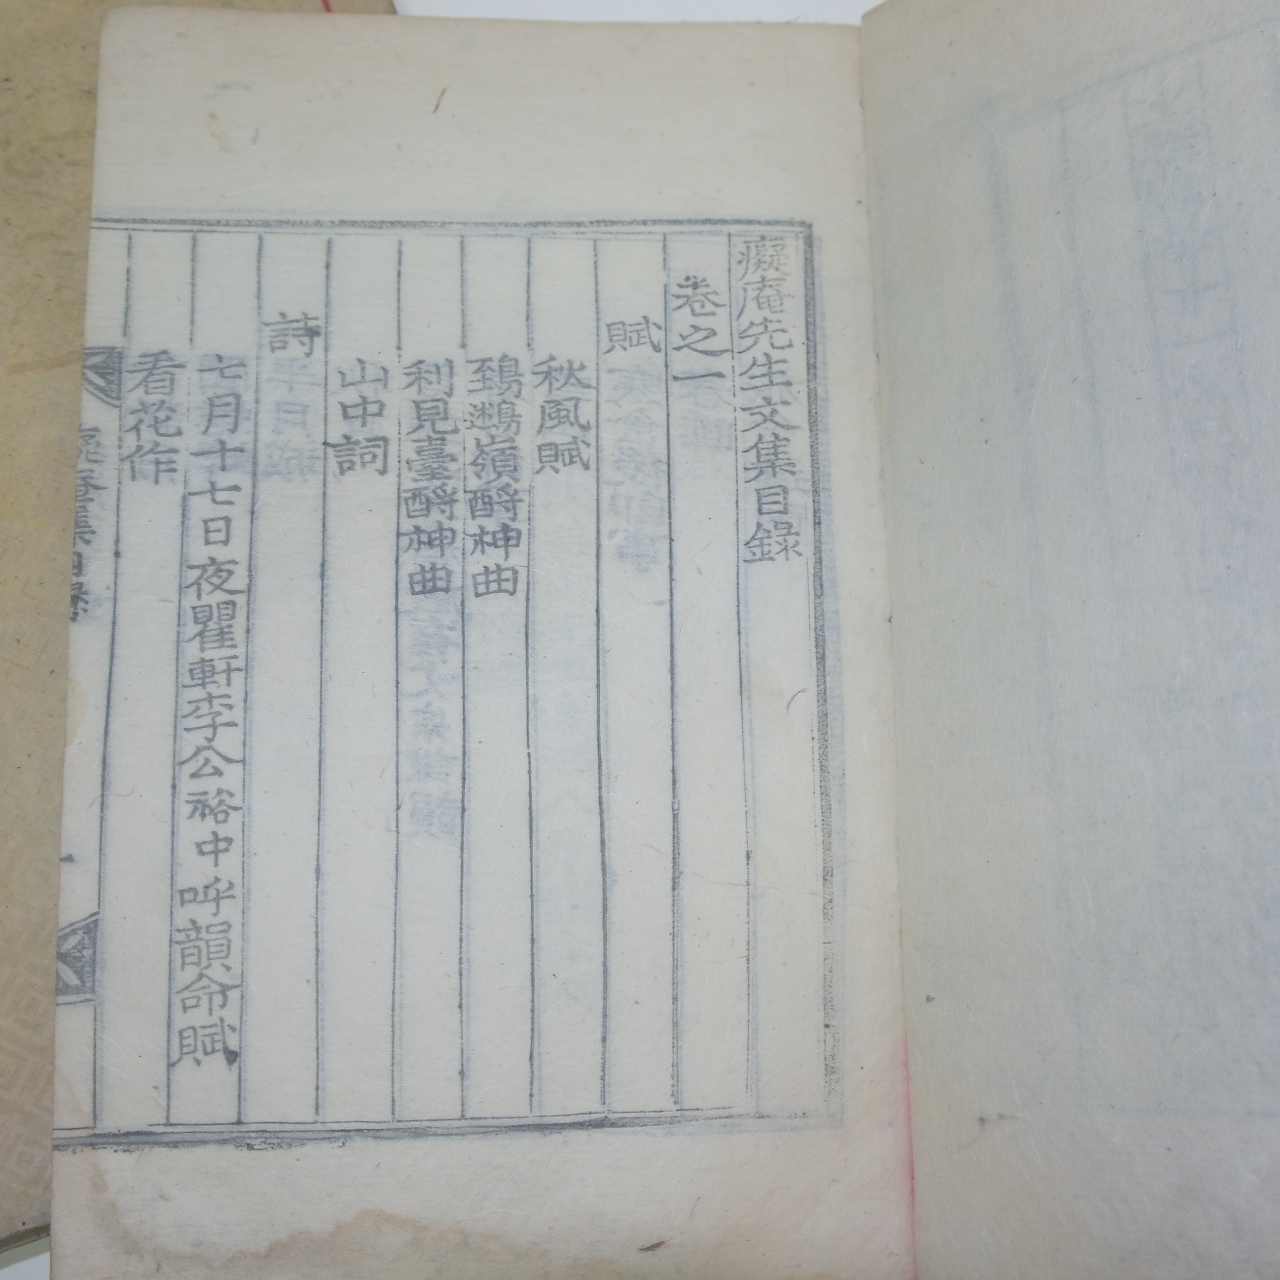 癡庵先生文集目錄
卷之一
賦
秋風賦
鵄鷀嶺酹神曲
利見臺酹神曲
山中詞
詩
七月十七日夜瞿軒李公裕中呼韻命賦
看花作
癡庵集目錄
一